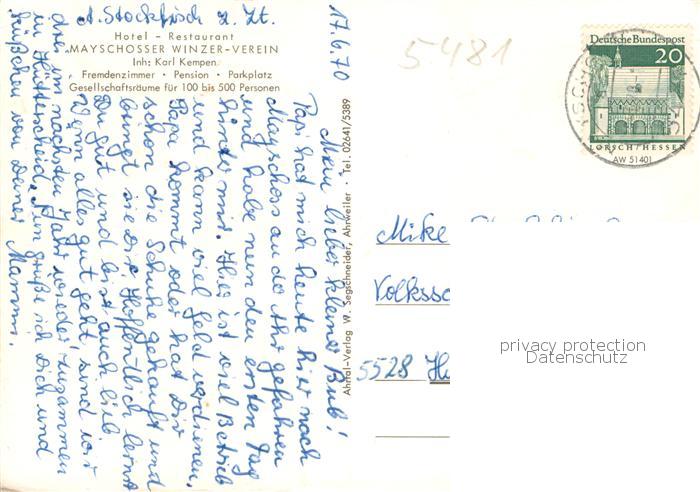 A. Stockfisch z. Zt.
Hotel - Restaurant
MAYSCHOSSER WINZER-VEREIN
Inh: Karl Kempen
Fremdenzimmer · Pension · Parkplatz
Gesellschaftsräume für 100 bis 500 Personen
17.6.70
Mein lieber kleiner Bub!
Papi hat mich heute hier nach
Mayschoss an do Ahr gefahren
und habe nun den ersten Tag
hinter mir. Hier ist viel Betrieb
und kann viel Geld verdienen.
Papa kommt oder hat Dir
schon die Schuhe gekauft und
bringt sie Dir. Hoffentlich lernst
Du gut und bist auch lieb
Wenn alles gut geht, sind wir
drei im nächsten Jahr wieder zusammen
in Hüttenscheid. Nun grüße ich Dich und
küßchen von Deiner Mammi.
Ahrtal-Verlag W. Segschneider, Ahrweiler · Tel. 02641/5389
5481
Deutsche Bundespost
20
LORSCH/HESSEN
AW 51401
Mike
Volkssc
5528
privacy protection
Datenschutz